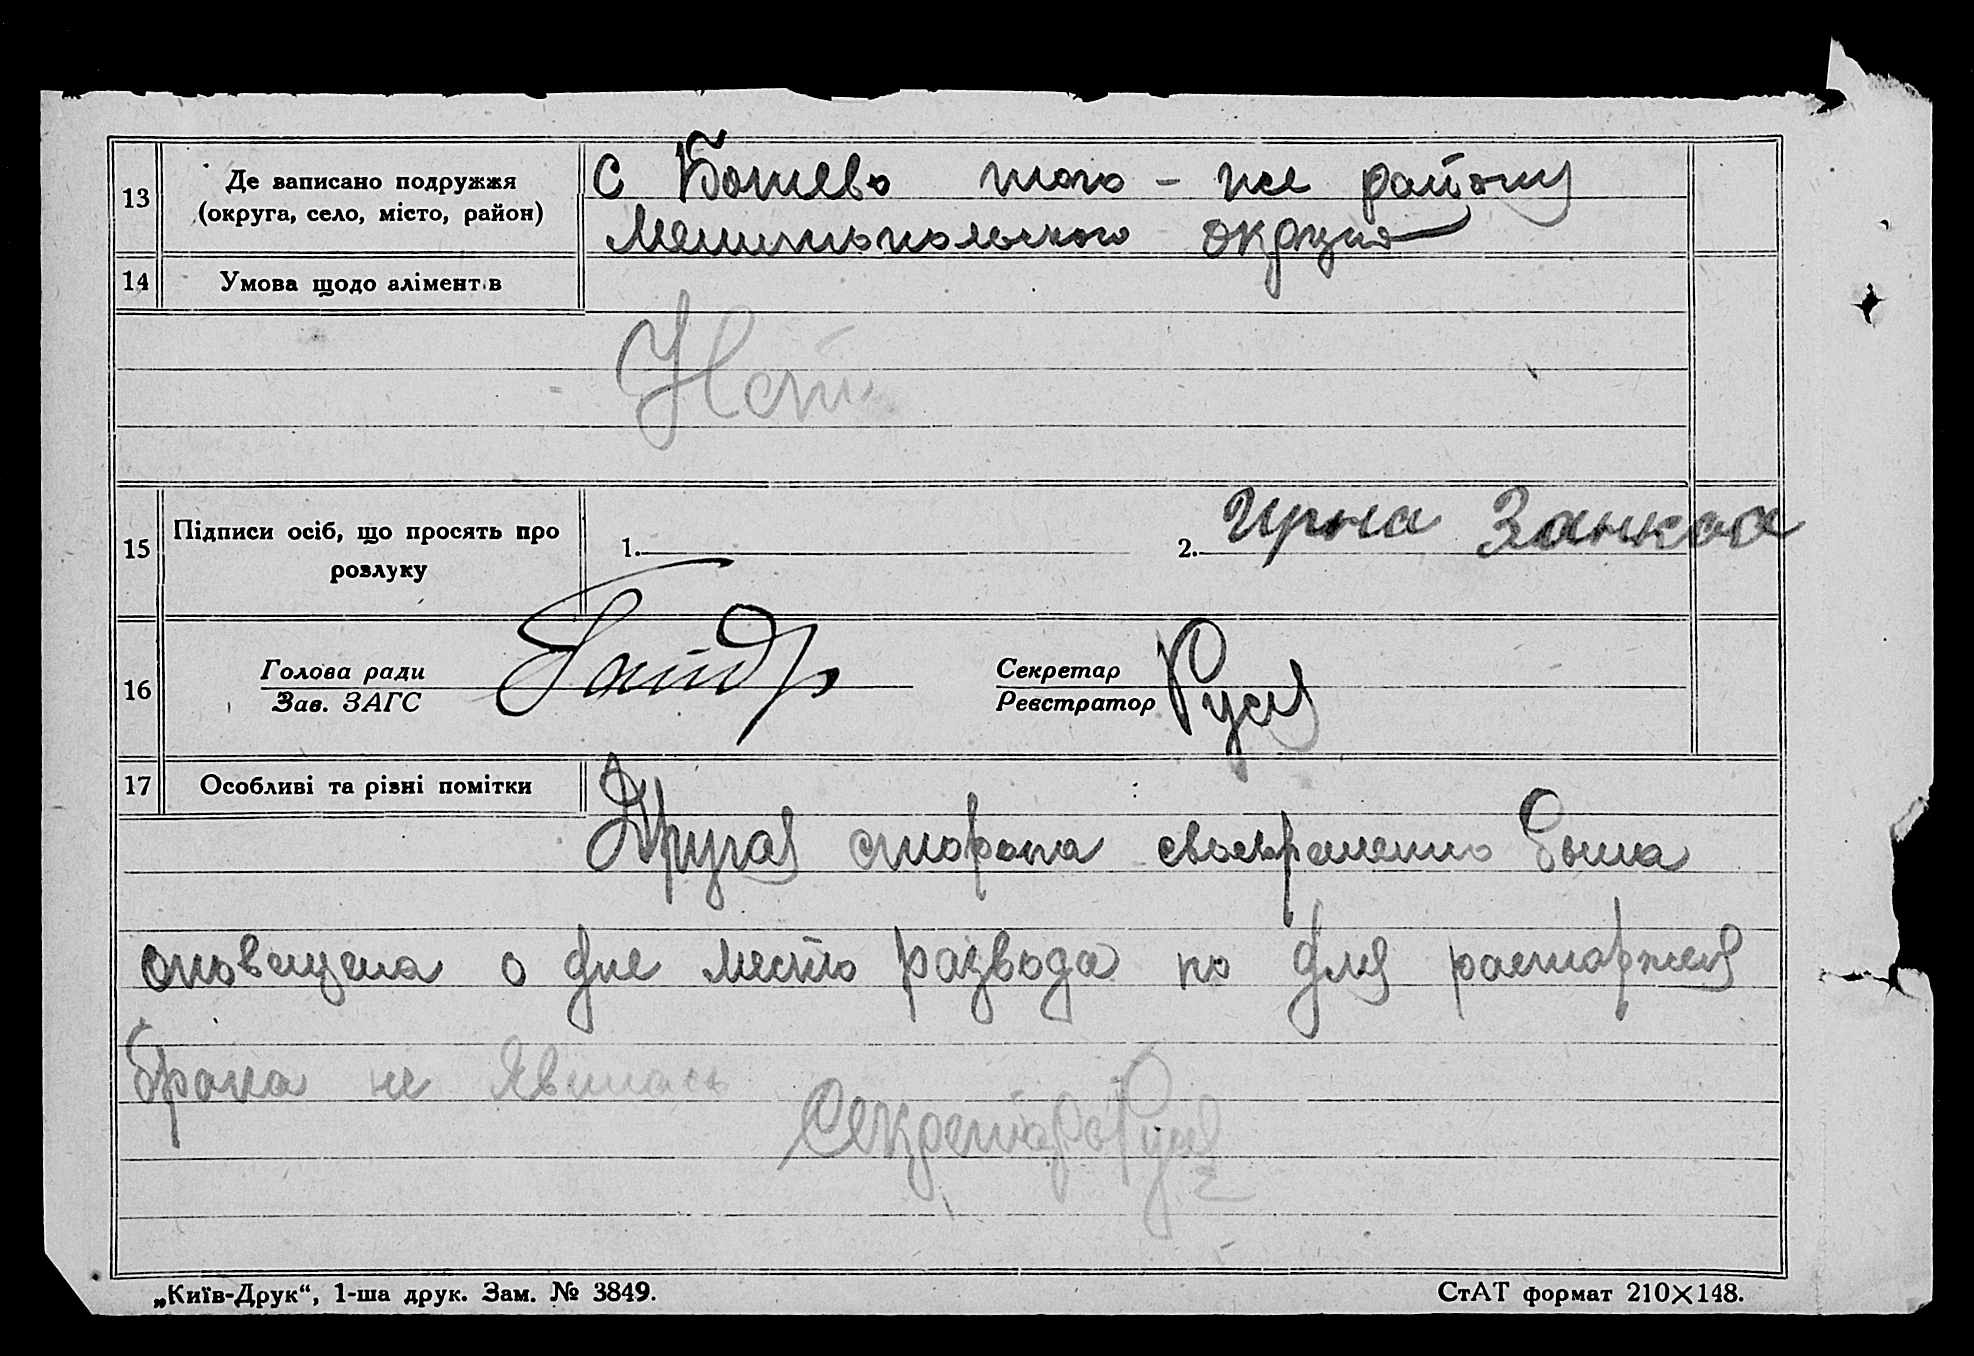 13
Де записано подружжя
(округа, село, місто, район)
С Ботево того-же району
Мелитопольского округа
14
Умова щодо алімент.в
Нет
15
Підписи осіб, що просять про
розлуку
1.
2. Ирна Занкова
16
Голова ради
Зав. ЗАГС
Секретар
Реєстратор
17
Особливі та різні помітки
Другая сторона своевременно была
оповещена о дне место развода но для расторжея
брака не явилась
Секретарь
„Київ-Друк“, 1-ша друк. Зам. № 3849.
СтАТ формат 210×148.